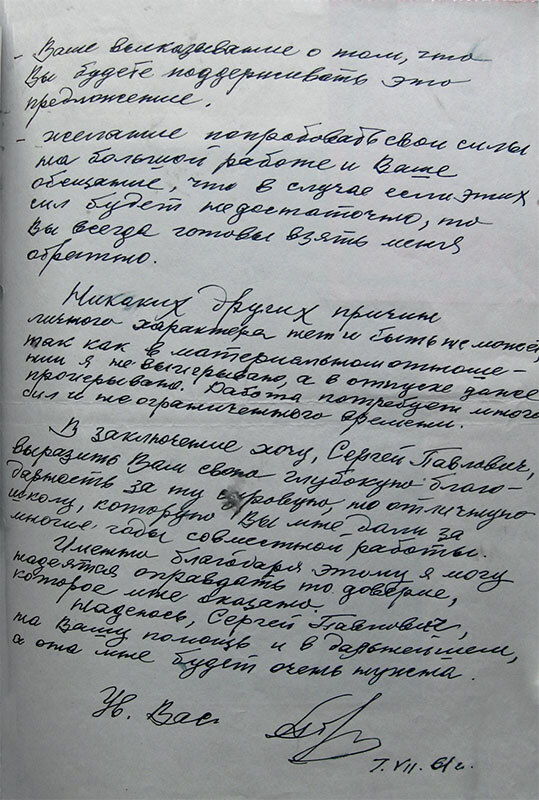 - Ваше высказывание о том, что
Вы будете поддерживать это
предложение.
- желание попробовать свои силы
на большой работе и Ваше
обещание, что в случае если этих
сил будет недостаточно, то
Вы всегда готовы взять меня
обратно.
Никаких других причин
личного характера нет и быть не может,
так как в материальном отноше-
нии я не выигрываю, а в отпуске даже
проигрываю. Работа потребует много
сил и неограниченного времени.
В заключение хочу, Сергей Павлович,
выразить Вам свою глубокую благо-
дарность за ту суровую, но отличную
школу, которую Вы мне дали за
многие годы совместной работы.
Именно благодаря этому я могу
надеятся оправдать то доверие,
которое мне оказано.
Надеюсь, Сергей Павлович,
на Вашу помощь и в дальнейшем,
а она мне будет очень нужна.
Ув. Вас
7.VII.61г.